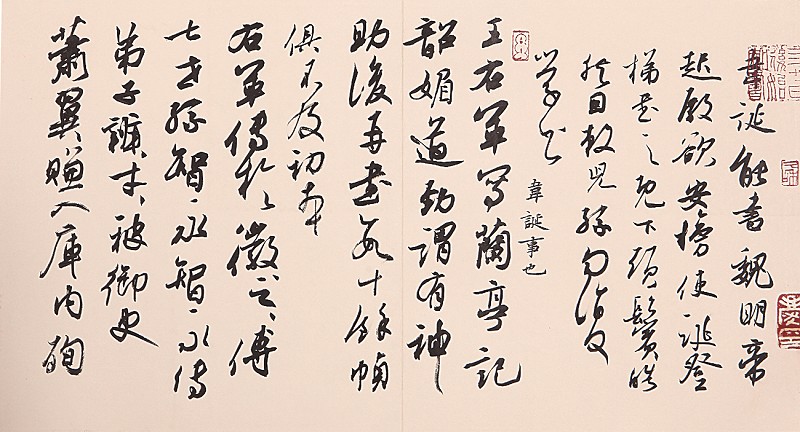 韋誕能書魏明帝
起殿欲安榜使誕登
梯書之既下頭鬢皓
然因敕兒孫勿復
學書
韋誕事也
王右軍寫蘭亭記
韶媚遒勁謂有神
助後再書數十餘幀
俱不及初本
右軍傳於徽之、傳
七世孫智永智永傳
弟子辨才、被御史
蕭翼賺入庫內殉